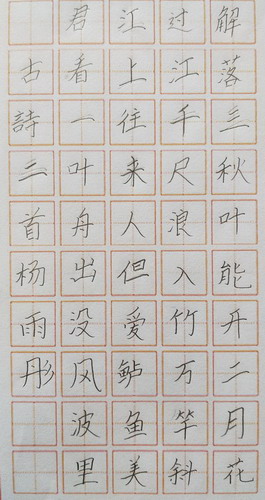 解落三秋叶能开二月花
过江千尺浪入竹万竿斜
江上往来人但爱鲈鱼美
君看一叶舟出没风波里
古詩二首杨雨彤